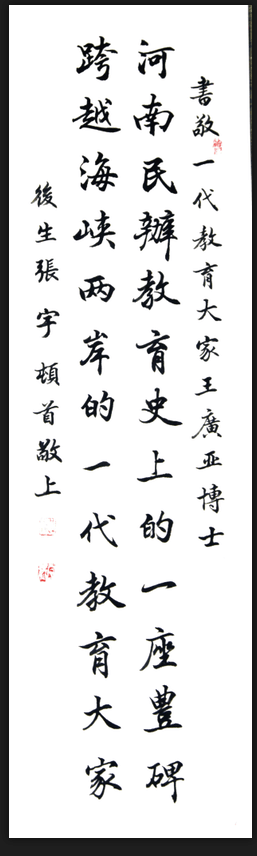 書敬一代教育大家王廣亚博士
河南民辦教育史上的一座豐碑
跨越海峡两岸的一代教育大家
後生張宇頓首敬上